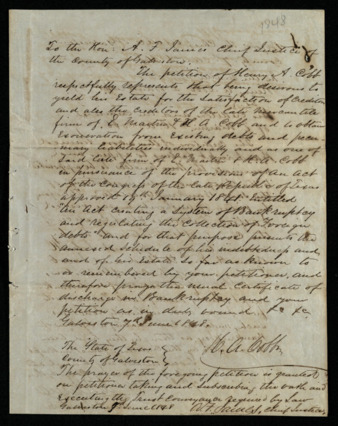 To the Hon. A. F. James Chief Justice of
the County of Galveston.
The petition of Henry A. Cobb
respectfully represents that being desirous to
yield his Estate for the Satisfaction of Creditors
and also the Creditors of the late mercantile
firm of & H. A. Cobb and to obtain
exoneration from Existing debts and pecu
niary liabilities individually and as one of
Said late firm of & H. A. Cobb
in pursuance of the provisions of an act
of the Congress of the late Republic of Texas
approved 19th January 1841 Entitled
"An act creating a System of Bankruptcy
and regulating the Collection of Foreign
debts" and for that purpose presents the
annexed Schedule of his indebtedness and
and of his Estate So far as known to
or remembered by your petitioner, and
therefore prays the usual Certificate of
discharge in Bankruptcy and your
petitioner as in duty bound &c &c
Galveston 7th June 1848.
H. A. Cobb
The State of Texas
County of Galveston
The prayer of the foregoing petition is granted
on petitioner taking and Subscribing the oath and
Executing the trust Conveyance required by Law
Galveston June 1848
Chief Justice